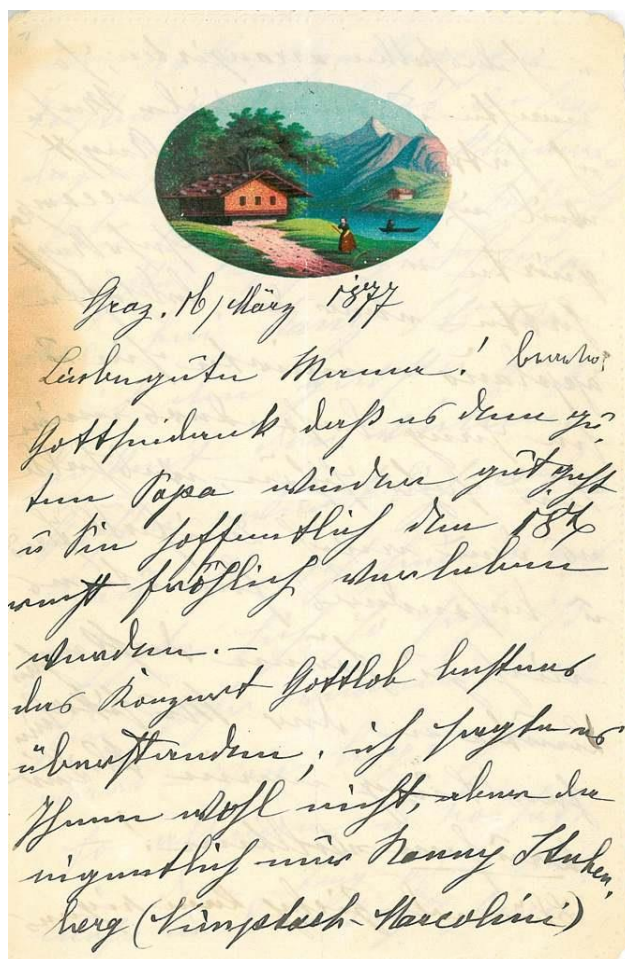 Graz, 16/ März 1877
Liebe gute Mama!
Gottseidank daß es dem gu-
ten Papa wieder gut geht
u Sie hoffentlich den 18t
recht fröhlich verleben
werden. —
das Konzert Gottlob bestens
überstanden; ich sagte es
Ihnen wohl nicht, aber da
eigentlich nur Nanny Stuben-
berg (Nimptsch-Marcolini)